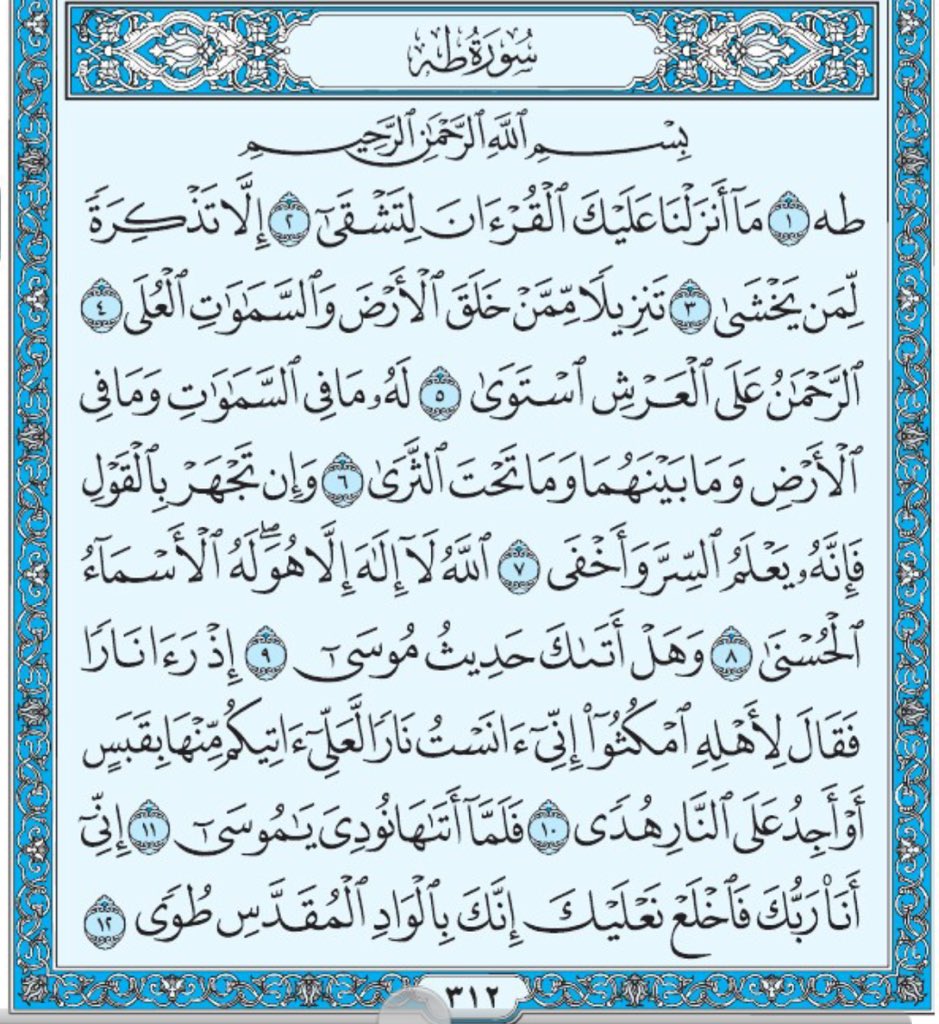 سُورَةُ طه
بِسْمِ ٱللَّهِ ٱلرَّحْمَٰنِ ٱلرَّحِيمِ
طه ١ مَآ أَنزَلْنَا عَلَيْكَ ٱلْقُرْءَانَ لِتَشْقَىٰٓ ٢ إِلَّا تَذْكِرَةً
لِّمَن يَخْشَىٰ ٣ تَنزِيلًا مِّمَّنْ خَلَقَ ٱلْأَرْضَ وَٱلسَّمَٰوَٰتِ ٱلْعُلَى ٤
ٱلرَّحْمَٰنُ عَلَى ٱلْعَرْشِ ٱسْتَوَىٰ ٥ لَهُۥ مَا فِي ٱلسَّمَٰوَٰتِ وَمَا فِي
ٱلْأَرْضِ وَمَا بَيْنَهُمَا وَمَا تَحْتَ ٱلثَّرَىٰ ٦ وَإِن تَجْهَرْ بِٱلْقَوْلِ
فَإِنَّهُۥ يَعْلَمُ ٱلسِّرَّ وَأَخْفَى ٧ ٱللَّهُ لَآ إِلَٰهَ إِلَّا هُوَۖ لَهُ ٱلْأَسْمَآءُ
ٱلْحُسْنَىٰ ٨ وَهَلْ أَتَىٰكَ حَدِيثُ مُوسَىٰٓ ٩ إِذْ رَءَا نَارًا
فَقَالَ لِأَهْلِهِ ٱمْكُثُوٓا۟ إِنِّيٓ ءَانَسْتُ نَارًا لَّعَلِّيٓ ءَاتِيكُم مِّنْهَا بِقَبَسٍ
أَوْ أَجِدُ عَلَى ٱلنَّارِ هُدًى ١٠ فَلَمَّآ أَتَىٰهَا نُودِيَ يَٰمُوسَىٰٓ ١١ إِنِّيٓ
أَنَا۠ رَبُّكَ فَٱخْلَعْ نَعْلَيْكَ إِنَّكَ بِٱلْوَادِ ٱلْمُقَدَّسِ طُوًى ١٢
٣١٢